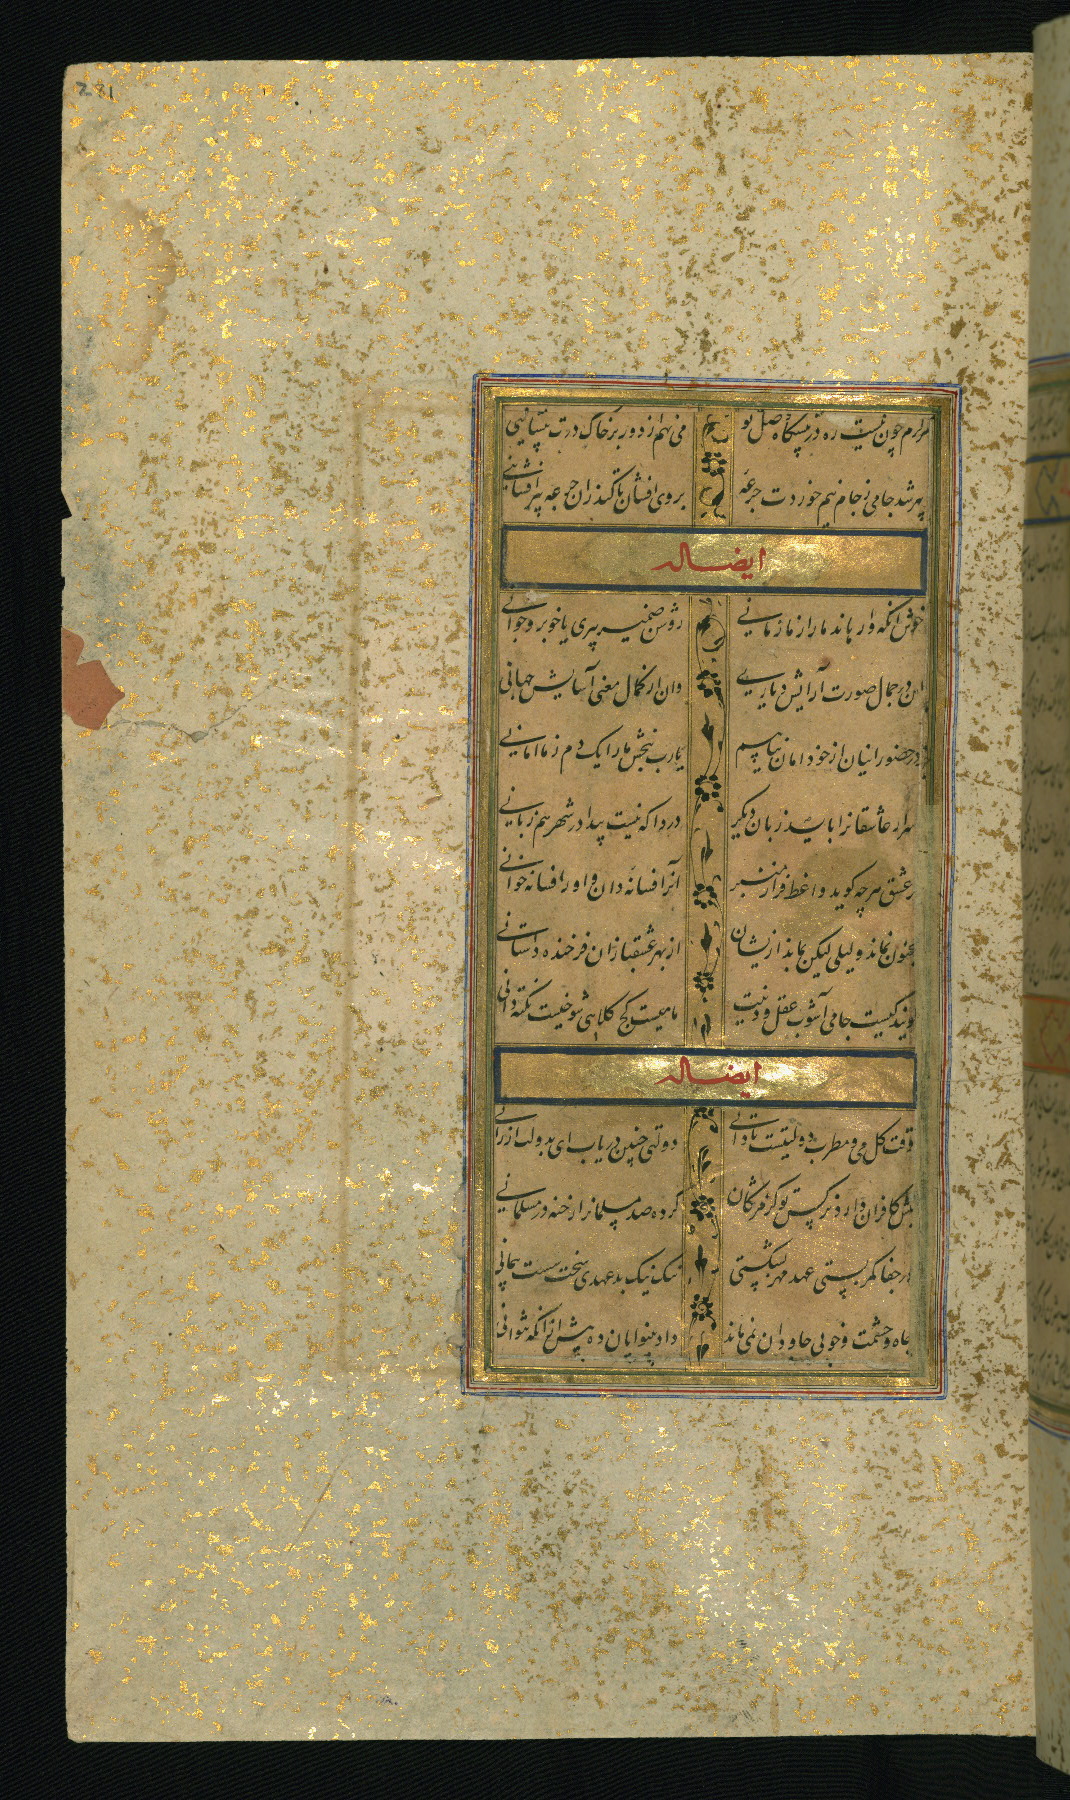 281
مرارم چون نیست ره در پیشگاه وصل تو می نهم از دور بر خاک درت پیشانیی
پیر شد جامی ز جام غم خوردت جرعه بر وی افشان تا کند زان جرعه پیرافشانیی
ایضا له
خوش آنکه وارهاند ما را ز ما زمانی روشن ضمیر پیری یا خوبرو جوانی
این در جمال صورت آرایش دیاری وان از کمال معنی آسایش جهانی
در حضور اینان از خود امان نیابیم یارب ببخش ما را یک دم ز ما امانی
اسرار عاشقانرا باید زبان دیگر دردا که نیست پیدا در شهر هم زبانی
ز عشق هر چه گوید واعظ فراز منبر آنرا فسانه دان و او را فسانه خوانی
مجنون نماند و لیلی لیکن بماند ازیشان از بهر عشقبازان فرخنده داستانی
گویند کیست جامی آشوب عقل و دینت ما میست کج کلاهی شوخیست نکته دانی
ایضا له
وقت گل می و مطرب دولتیست تا دانی دولتی چنین دریاب ای بدولت ارزانی
کیش کافران دارد نرگس تو کز مژگان کرده صد مسلمانرا رخنه در مسلمانی
در جفا کمر بستی عهد مهر بشکستی نیک نیک بدعهدی سخت سست پیمانی
جاه و حشمت و خوبی جاودان نمی ماند داد بینوایان ده پیش از انکه نتوانی